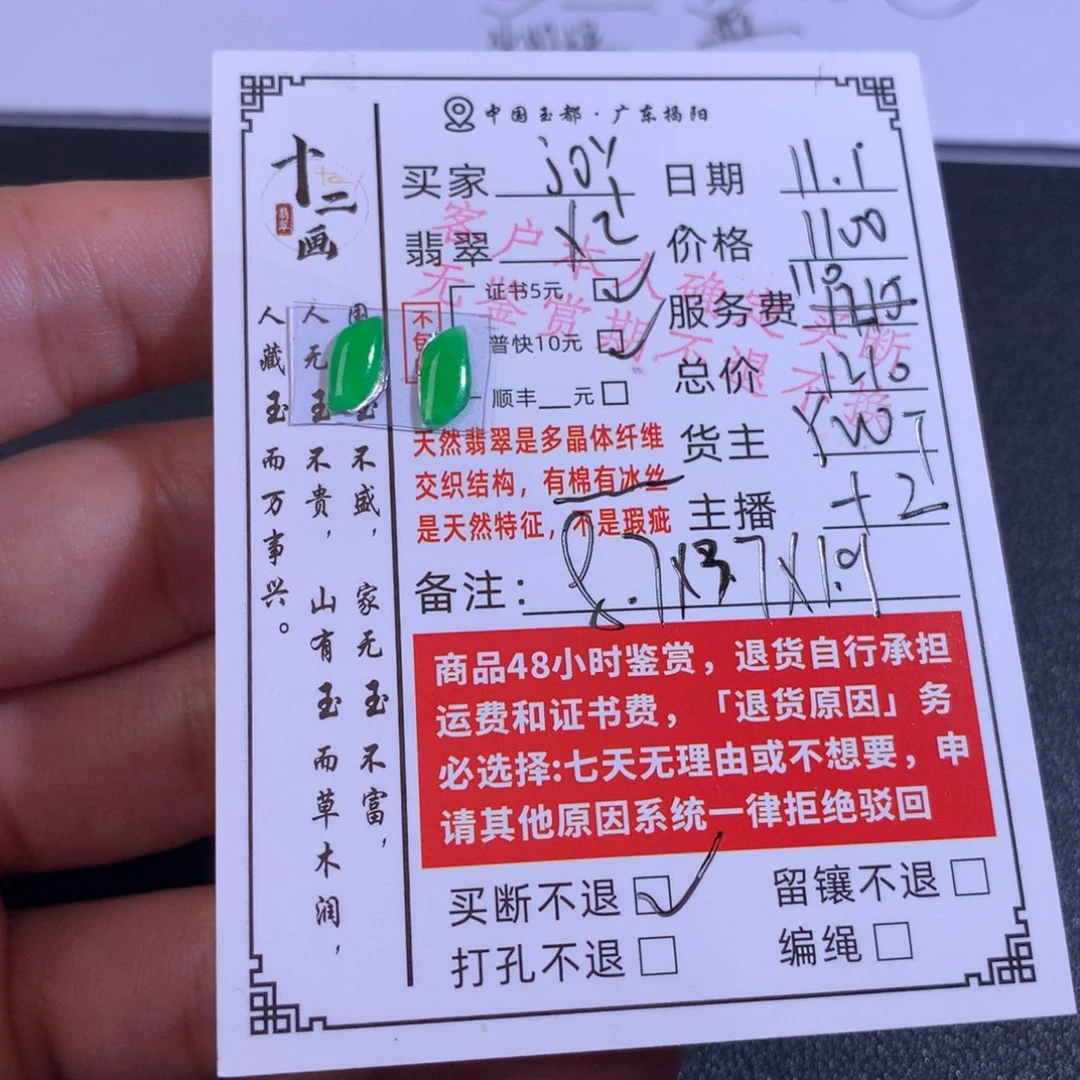 中国玉都·广东揭阳
十二画
翡翠
买家 joy 日期 11.1
翡翠 X2 价格 1100
证书5元 服务费 110
普快10元 总价 1210
顺丰__元
货主 YWT
主播 +2
客户本人确定买断
无鉴赏期不退不换
天然翡翠是多晶体纤维
交织结构，有棉有冰丝
是天然特征，不是瑕疵
备注：8.7X3.7X1.9
商品48小时鉴赏，退货自行承担
运费和证书费，「退货原因」务
必选择:七天无理由或不想要，申
请其他原因系统一律拒绝驳回
买断不退 留镶不退
打孔不退 编绳
国 不盛，家无玉不富，
人无玉不贵，山有玉而草木润，
人藏玉而万事兴。